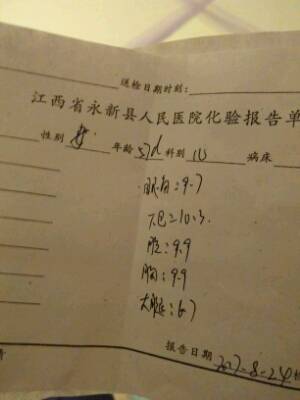 送检日期时刻:
江西省永新县人民医院化验报告单
性别 年龄 科别 儿 病床
:9.7
下巴=10.3
:9.9
胸:9.9
大腿:6.7
报告日期